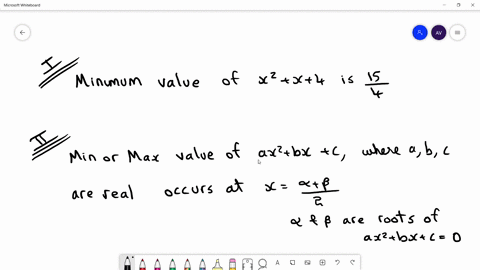 Microsoft Whiteboard
AV
I
Minimum value of x²+x+4 is 15/4
II
Min or Max value of ax²+bx+c, where a, b, c
are real occurs at x = α+β/2
α & β are roots of
ax²+bx+c=0